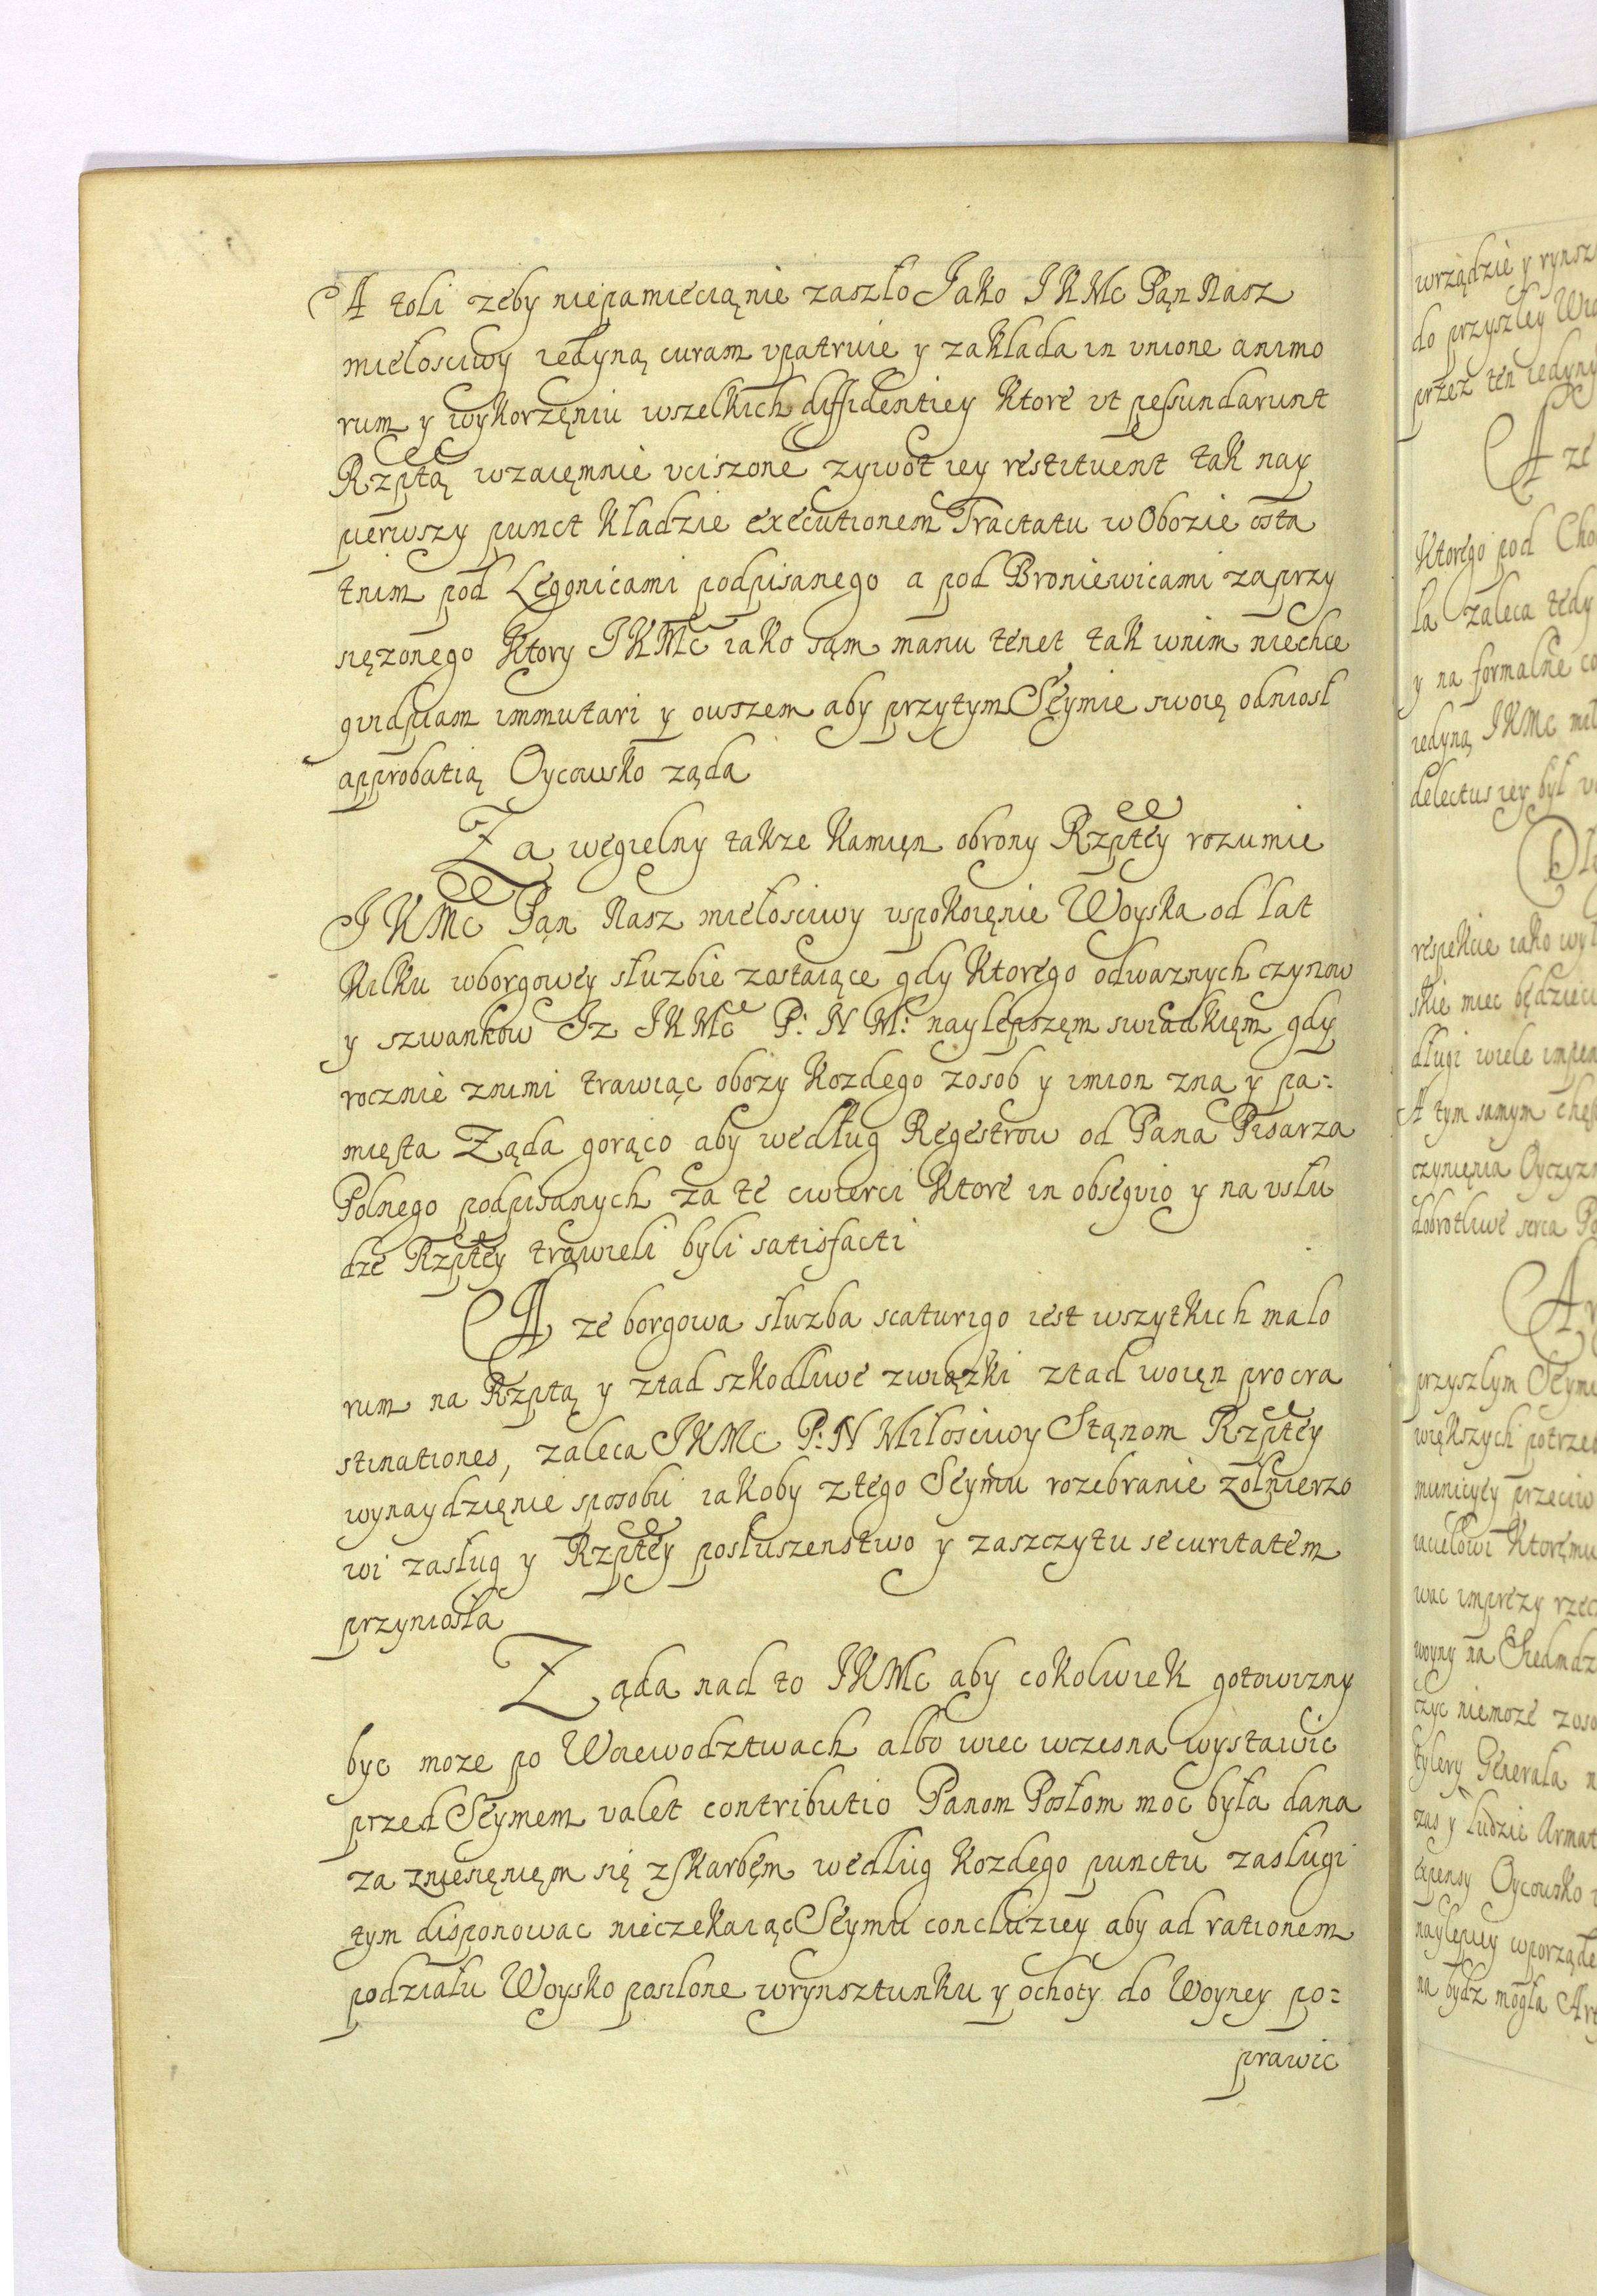 A toli zeby niepamiecią nie zaszło Jako JKMc Pąn Nasz
miełosciwy iedyną curam vpatruie y zakłada in vnione animo
rum y wykorzęniu wszelkich diffidentiey ktore vt pessundarunt
Rzptą wzaięmnie vciszone zywot iey restituent tak nay
pierwszy punct kładzie executionem Tractatu w Obozie osta
tnim pod Legonicami podpisanego a pod Broniewicami zaprzy
siężonego Ktory JKMc iako sąm manu tenet tak wnim niechce
quidpiam immutari y owszem aby przytym Sęymie swoię odniosł
approbatią Oycowsko ząda
Za węgielny takze kamięn obrony Rzptey rozumie
JKMc Pąn Nasz miełosciwy vspokoięnie Woyska od lat
kilku wborgowey słuzbie zostaiące gdy ktorego odwaznych czynow
y szwankow Iz JKMc P: N M: naylepszęm swiadkięm gdy
rocznie znimi trawiąc obozy kozdego zosob y imion zna y pa=
mięta Ząda gorąco aby według Regestrow od Pana Pisarza
Polnego podpisanych za te cwierci ktore in obseqvio y na vsłu
dze Rzptey trawieli byli satisfacti
A ze borgowa słuzba scaturigo iest wszytkich malo
rum na Rzptą y ztad szkodliwe związki ztad woięn procra
stinationes, zaleca JKMc P: N Miłosciwy Stąnom Rzptey
wynaydzięnie sposobu iakoby z tego Seymu rozebranie zołnierzo
wi zasług y Rzptey posłuszenstwo y zaszczytu securitatem
przyniosła
Ząda nad to JKMc aby cokolwiek gotowizny
byc moze po Woiewodztwach albo wiec wczesna wystawic
przed Sęymem valet contributio Panom Posłom moc była dana
za zniesięnięm się zskarbęm według kozdego punctu zasługi
tym disponowac nieczekaiąc Sęymu concluziey aby ad rationem
podziału Woysko posilone wrynsztunku y ochoty do Woyney po=
prawic
wrządzie y rynsz
do przyszłey
przez ten iedyny
A ze
Ktorego pod
la zaleca tedy
y na formalne
iedyną JKMc
delectus iey był
respekcie iako
skie miec będzieci
długi wiele
A tym samym
czynięnia Oyczyz
dobrotliwe serca
przyszłym Sęym
większych potrzeb
municyey przeciw
Ktoręmu
wac imprezy
woyny na
czyc niemoze
Generała
zas y ludzie Armat
Oycowsko
naylepiey wporząde
na bydz mogła